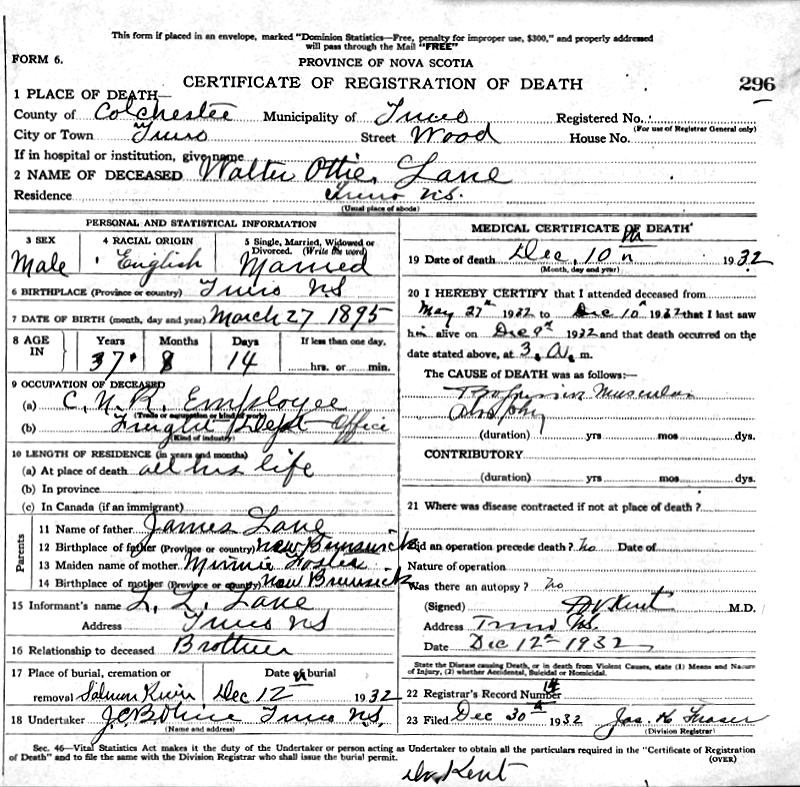 This form if placed in an envelope, marked "Dominion Statistics—Free, penalty for improper use, $300," and properly addressed
will pass through the Mail "FREE"
FORM 6.
PROVINCE OF NOVA SCOTIA
CERTIFICATE OF REGISTRATION OF DEATH
296
1 PLACE OF DEATH—
County of Colchester Municipality of Truro Registered No.
(For use of Registrar General only)
City or Town Truro Street Wood House No.
If in hospital or institution, give name
2 NAME OF DECEASED Walter Ottie Lane
Residence Truro N.S.
(Usual place of abode)
PERSONAL AND STATISTICAL INFORMATION
3 SEX 4 RACIAL ORIGIN 5 Single, Married, Widowed or
Divorced. (Write the word)
Male English Married
6 BIRTHPLACE (Province or country) Truro NS
7 DATE OF BIRTH (month, day and year) March 27 1895
8 AGE IN Years Months Days If less than one day.
37 8 14 hrs. or min.
9 OCCUPATION OF DECEASED
(a) C. N. R. Employee
(Trade or occupation or kind of work)
(b) Freight Dept Office
(Kind of industry)
10 LENGTH OF RESIDENCE (in years and months)
(a) At place of death all his life
(b) In province
(c) In Canada (if an immigrant)
Parents
11 Name of father James Lane
12 Birthplace of father (Province or country) New Brunswick
13 Maiden name of mother Minnie Foster
14 Birthplace of mother (Province or country) New Brunsick
15 Informant's name L. L. Lane
Address Truro NS
16 Relationship to deceased Brother
17 Place of burial, cremation or Date of burial
removal Salmon River Dec 12 1932
18 Undertaker Truro N.S.
(Name and address)
MEDICAL CERTIFICATE OF DEATH
19 Date of death Dec. 10 1932
(Month, day and year)
20 I HEREBY CERTIFY that I attended deceased from
May 27th 1932 to Dec 10 1932 that I last saw
him alive on Dec 9th 1932 and that death occurred on the
date stated above, at 3. A. m.
The CAUSE of DEATH was as follows:—
Progressive Muscular
Atrophy
(duration) yrs mos dys.
CONTRIBUTORY
(duration) yrs mos dys.
21 Where was disease contracted if not at place of death?
Did an operation precede death? No Date of
Nature of operation
Was there an autopsy? No
(Signed) Kent M.D.
Address Truro N.S.
Date Dec 12th 1932
State the Disease causing Death, or in death from Violent Causes, state (1) Means and Nature
of Injury, (2) whether Accidental, Suicidal or Homicidal.
22 Registrar's Record Number
23 Filed Dec 30 1932 Jas. H Fraser
(Division Registrar)
Sec. 46—Vital Statistics Act makes it the duty of the Undertaker or person acting as Undertaker to obtain all the particulars required in the "Certificate of Registration
of Death" and to file the same with the Division Registrar who shall issue the burial permit.
(OVER)
Dr. Kent